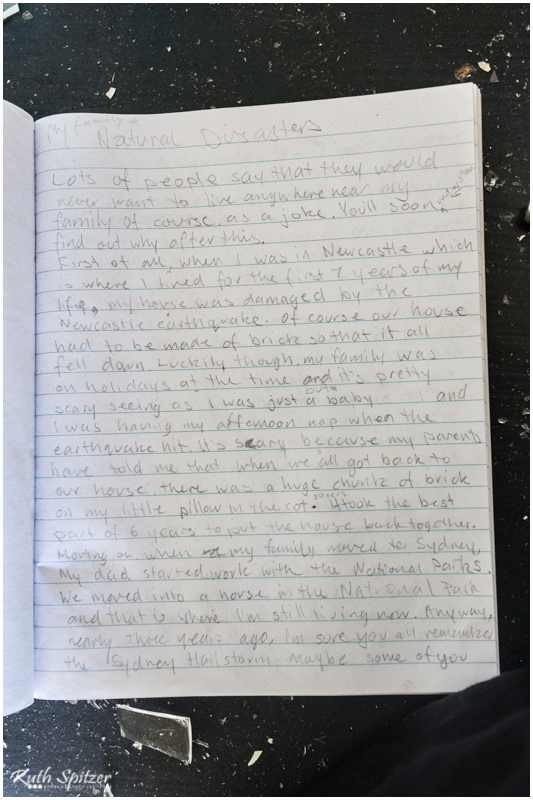 My family &
Natural Disasters
Lots of people say that they would
never want to live anywhere near my
family of course, as a joke. You'll soon understand
find out why after this.
First of all, when I was in Newcastle which
is where I lived for the first 7 years of my
life, my house was damaged by the
Newcastle earthquake. Of course our house
had to be made of brick so that it all
fell down. Luckily though, my family was
on holidays at the time and it's pretty
scary seeing as I was just a baby and
I was having my afternoon nap when the
earthquake hit. It's scary because my parents
have told me that when we all got back to
our house, there was a huge chunk of brick
on my little pillow in the cot. It took the best
part of 6 years to put the house back together.
Moving on when my family moved to Sydney,
My dad started work with the National Parks.
We moved into a house in the National Park
and that is where I'm still living now. Anyway,
nearly three years ago, I'm sure you all remember
the Sydney Hailstorm, maybe some of you
Ruth Spitzer